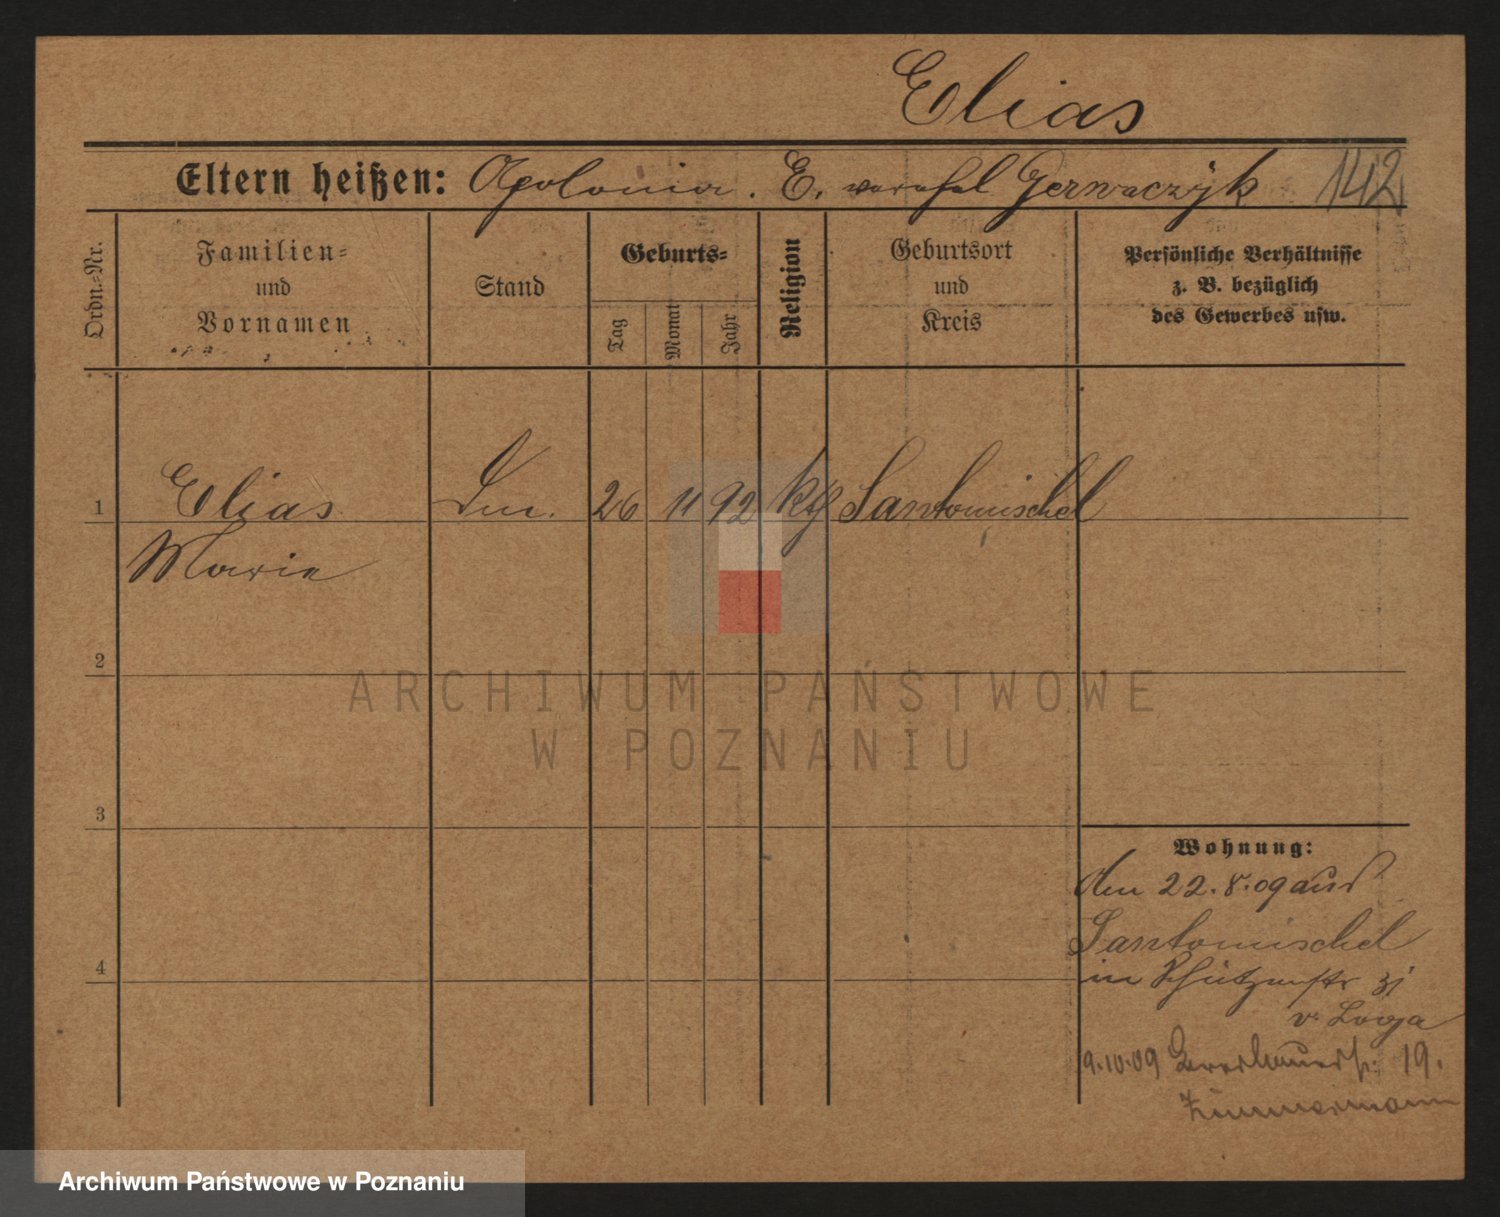 Elias
Eltern heißen: Apolonia. E. verehel Gerwaczyk 142
Ordn.-Nr.
Familien-
und
Vornamen
Stand
Geburts-
Tag
Monat
Jahr
Religion
Geburtsort
und
Kreis
Persönliche Verhältnisse
z. B. bezüglich
des Gewerbes usw.
1 Elias 26 11 92 kth Santomischel
Marie
2
ARCHIWUM PAŃSTWOWE
W POZNANIU
3
Wohnung:
den 22.8.09 aus
Santomischel
4
in Schützenstr 31
v.
9.10.09 19.
Zimmermann
Archiwum Państwowe w Poznaniu